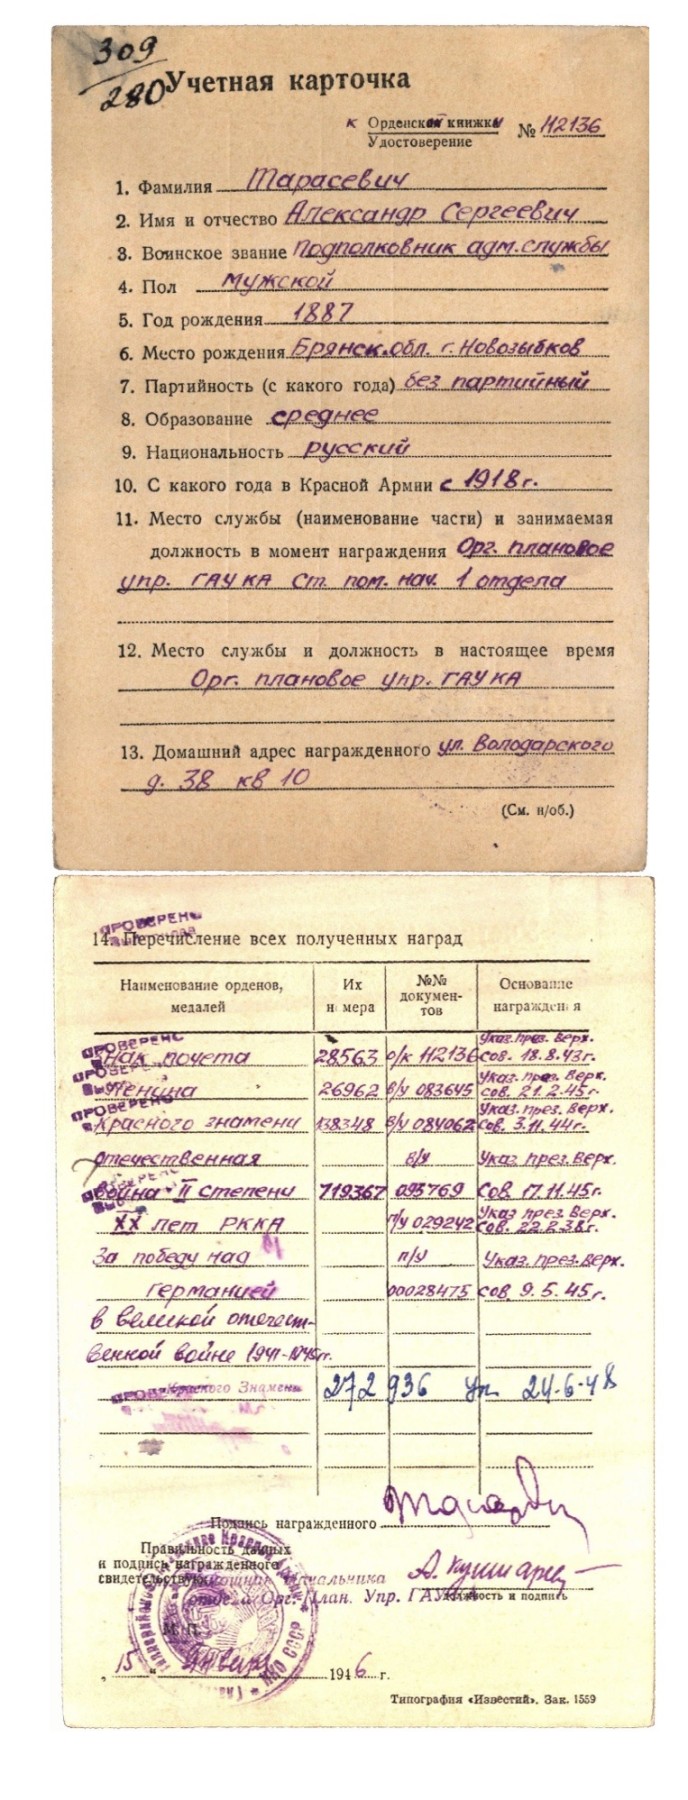 309
280
Учетная карточка
к Орденской книжки № 112136
Удостоверение
1. Фамилия Тарасевич
2. Имя и отчество Александр Сергеевич
3. Воинское звание подполковник адм. службы
4. Пол мужской
5. Год рождения 1887
6. Место рождения Брянск. обл. г. Новозыбков
7. Партийность (с какого года) без партийный
8. Образование среднее
9. Национальность русский
10. С какого года в Красной Армии с 1918 г.
11. Место службы (наименование части) и занимаемая
должность в момент награждения Орг. плановое
упр. ГАУ КА Ст. пом. нач. 1 отдела
12. Место службы и должность в настоящее время
Орг. плановое упр. ГАУ КА
13. Домашний адрес награжденного ул. Володарского
д. 38 кв 10
(См. н/об.)
ПРОВЕРЕНО
14. Перечисление всех полученных наград
Наименование орденов, медалей
Их номера
№№ документов
Основание награждения
ПРОВЕРЕНО
Знак почета 28563 о/к 112136 Указ. през. Верх. Сов. 18.8.43г.
ПРОВЕРЕНО
Ленина 26962 в/у 083645 Указ. през. Верх. Сов. 21.2.45г.
ПРОВЕРЕНО
Красного знамени 138348 в/у 084062 Указ. през. Верх. Сов. 3.11.44г.
отечественная в/у Указ. през. Верх.
война II степени 719367 093769 Сов. 17.11.45г.
XX лет РККА п/у 029242 Указ през. Верх. Сов. 22.2.38г.
За победу над п/у Указ. през. Верх.
Германией 00028475 сов. 9.5.45г.
в великой отечест-
венной войне 1941-1945гг.
ПРОВЕРЕНО
Красного Знамени 272 936 Ук 24-6-48
Подпись награжденного
Правильность данных
и подпись награжденного
свидетельствую: Помощник начальника
отдела Орг. План. Упр. ГАУ КА
должность и подпись
М. П.
„15" Января 1946 г.
Типография «Известий». Зак. 1559